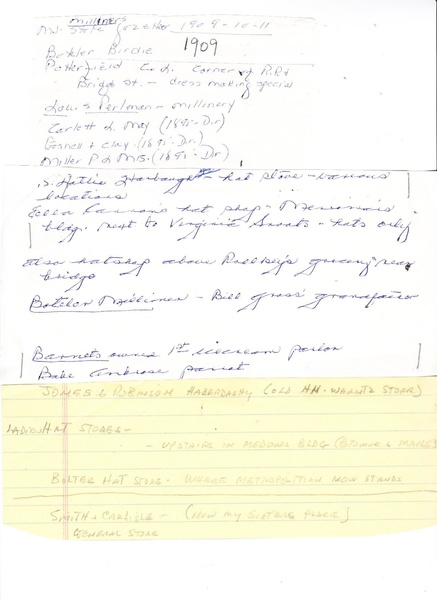 milliners
W.V. State Gazetteer 1909-10-11
Boteler Birdie 1909
Potterfield C.L. Corner of P.R.R +
Bridge St. - dress making special
Louis Perlman - millinery
Carlett L. May (1895-Dir)
Gosnell + Clay (1895-Dir.)
Miller P L Mrs. (1895-Dir)
Hattie Harbaugh - hat store - various
locations
hat shop -
bldg. next to Virginia - hats only
Also hat shop above grocery near
bridge
Boteler Milliner - Bill Gross' grandfather
Barnets owned 1st icecream parlor
Babe Ambrose parrot
JONES & ROBINSON HABERDASHY (OLD HH. STORE)
LADIES HAT STORES -
- UPSTAIRS IN BLDG
HAT STORE - WHERE METROPOLITAN NOW STANDS
SMITH & CARLISLE - (NOW MY SISTERS PLACE)
GENERAL STORE